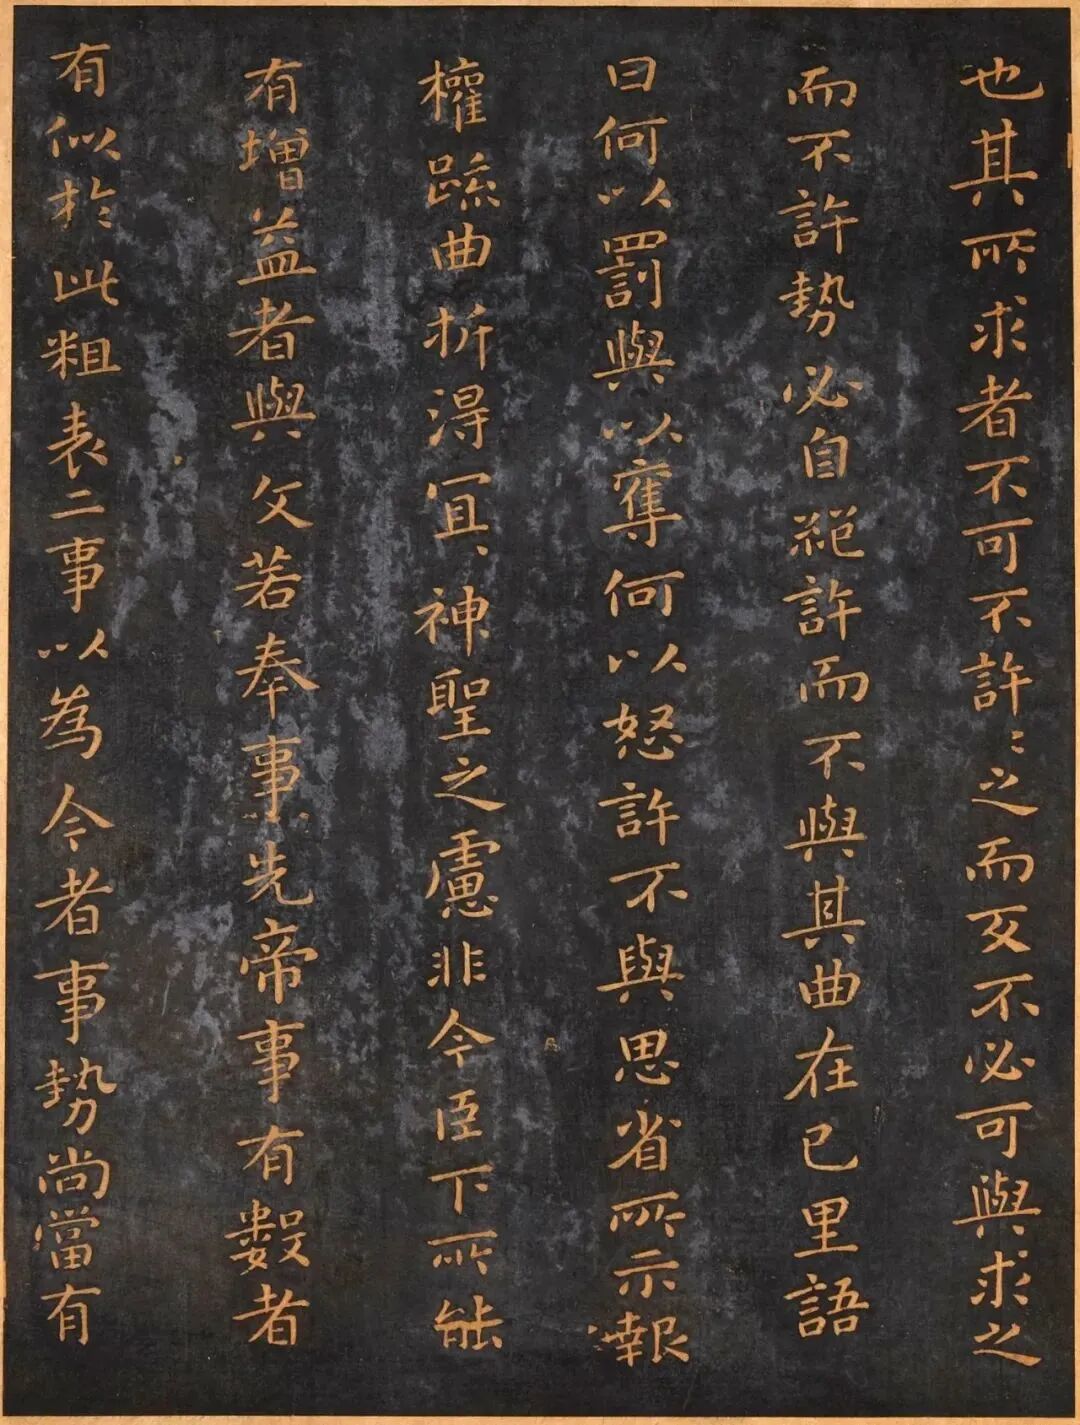 也其所求者不可不許〻之而反不必可與求之
而不許勢必自絕許而不與其曲在已里語
曰何以罰與以奪何以怒許不與思省所示報
權疏曲折得宜、神聖之慮非今臣下所能
有增益者與文若奉事先帝事有數者
有似於此粗表二事以為今者事勢尚當有